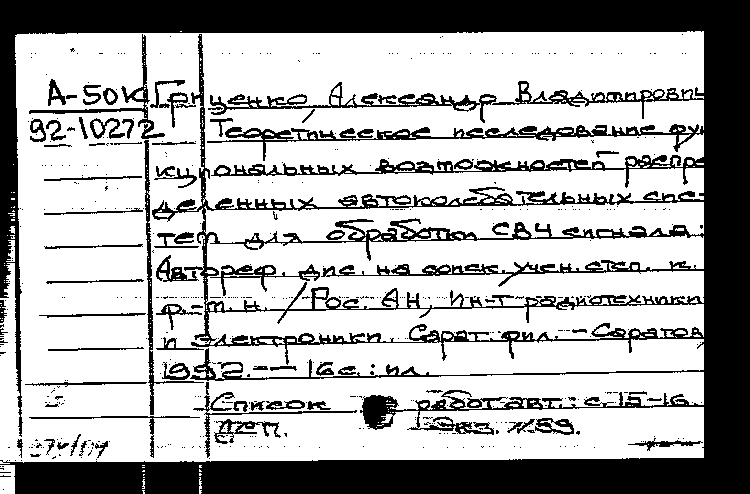 А-50к Гриценко, Александр Владимирович
92-10272 Теоретическое исследование фун
кциональных возможностей распре
деленных автоколебательных сис-
тем для обработки СВЧ сигнала:
Автореф. дис. на соиск. учен. степ. к.
ф.-м. н. / Рос. АН, Ин-т радиотехники
и электроники. Сарат. фил. - Саратов,
1992. - 16 с. : ил.
Список работ авт.: с. 15-16.
№59.